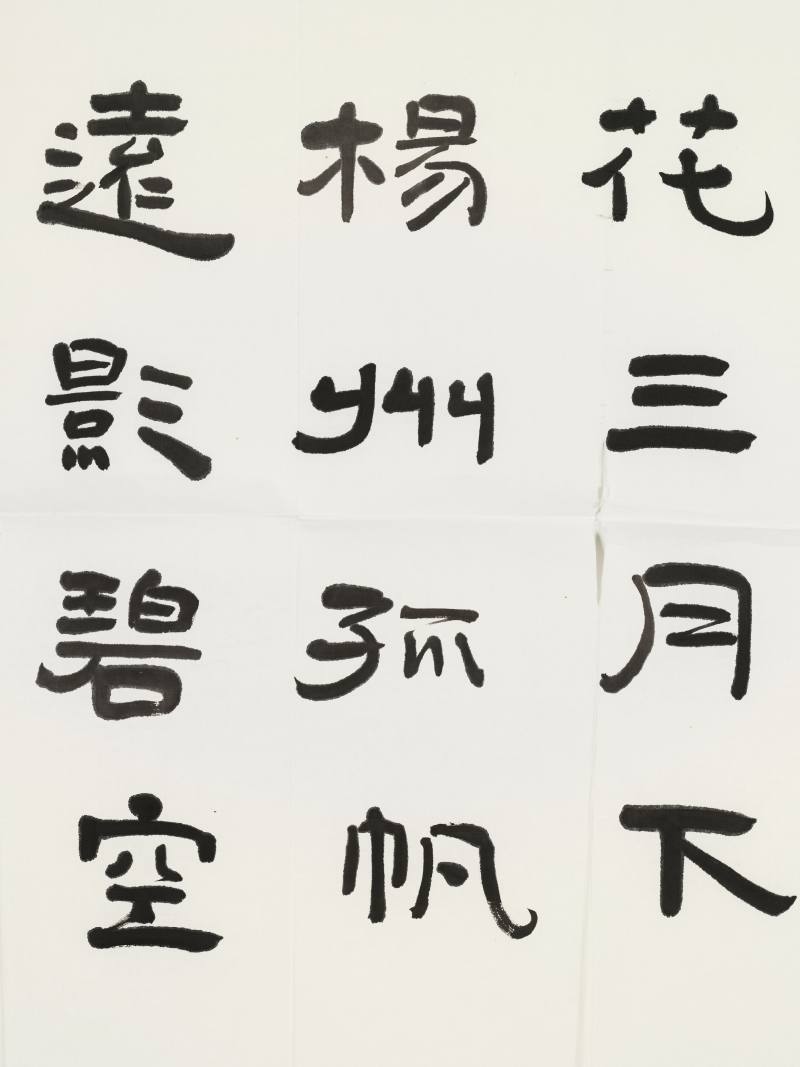 花三月下
楊州孤帆
遠影碧空